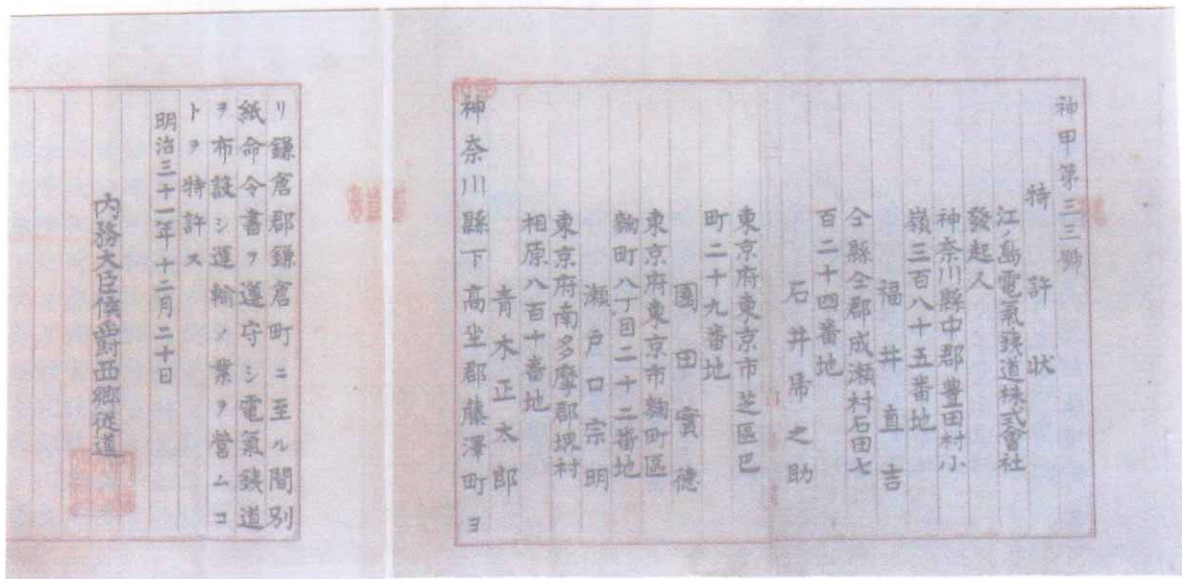 神甲第三三號
特許状
江ノ島電氣鉄道株式會社
發起人
神奈川縣中郡豊田村小
嶺三百八十五番地
福井直吉
仝縣仝郡成瀬村石田七
百二十四番地
石井帰之助
東京府東京市芝區巴
町二十九番地
團田實徳
東京府東京市麹町區
麹町八丁目二十二番地
瀬戸口宗明
東京府南多摩郡堺村
相原八百十番地
青木正太郎
神奈川縣下高坐郡藤澤町ヨ
リ鎌倉郡鎌倉町ニ至ル間別
紙命令書ヲ遵守シ電氣鉄道
ヲ布設シ運輸ノ業ヲ營ムコ
トヲ特許ス
明治三十一年十二月二十日
内務大臣侯爵西郷従道